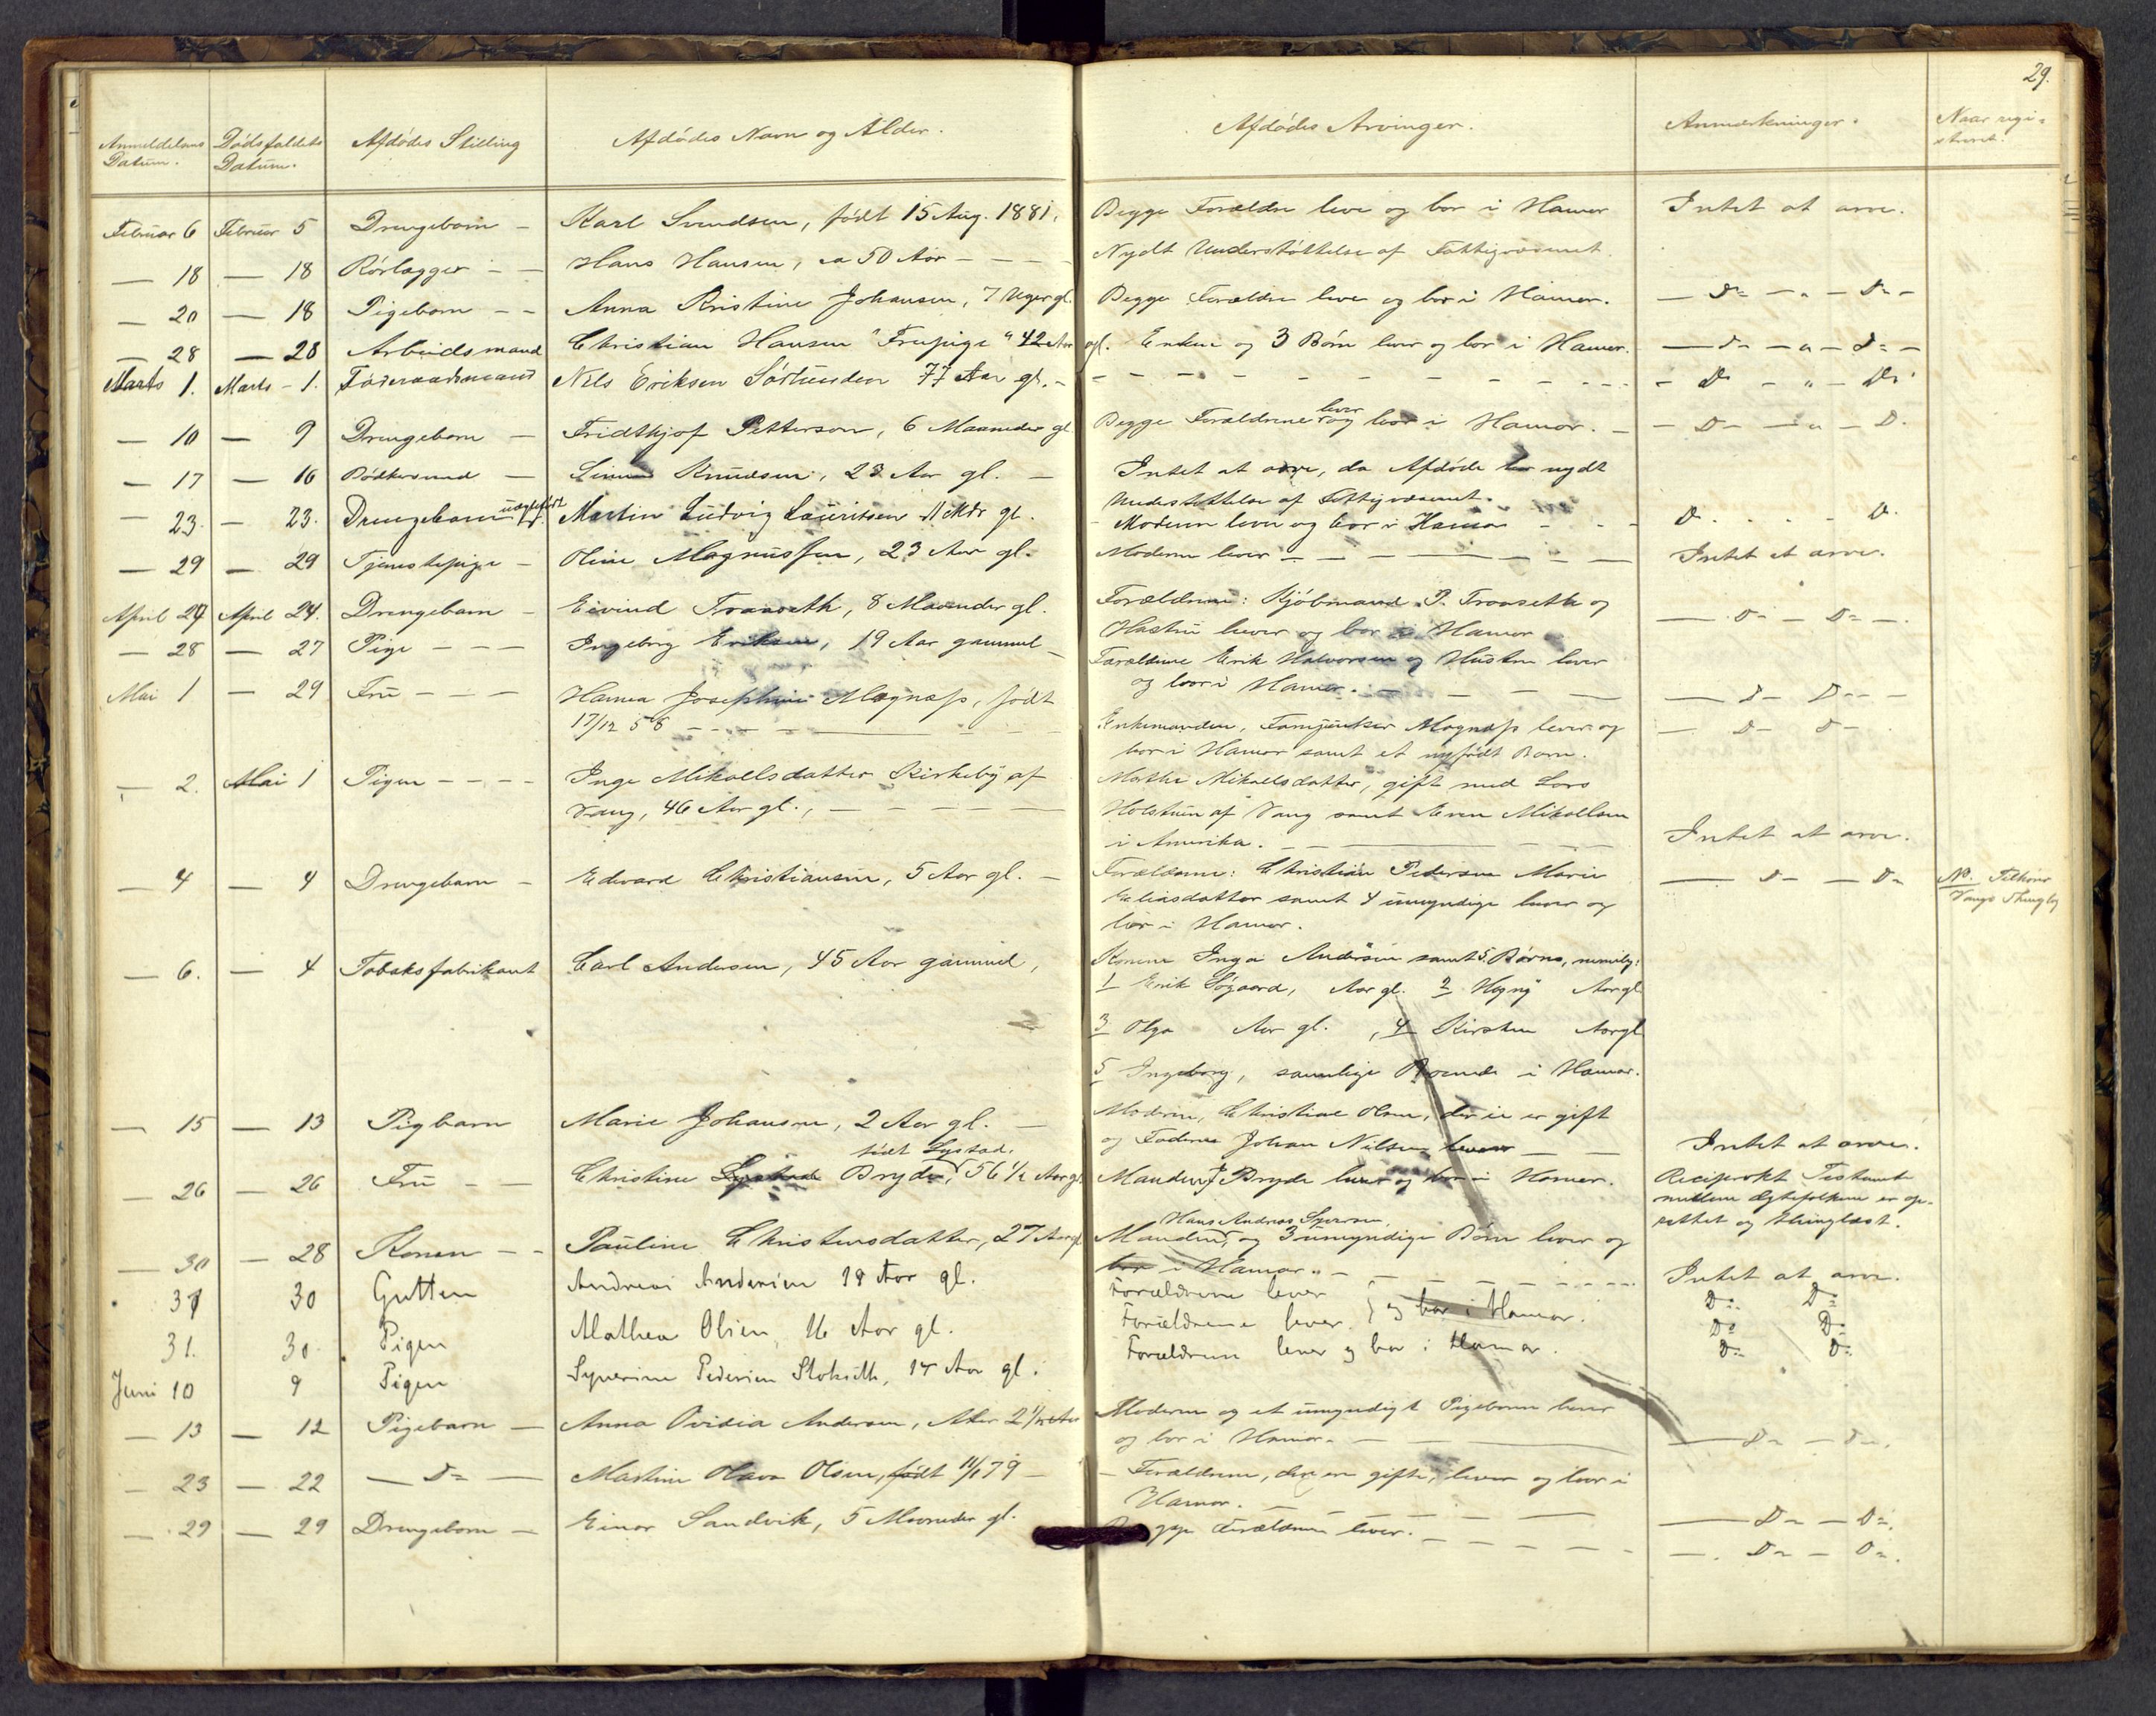 29.
Anmeldelsens Datum. Dödsfaldets Datum. Afdödes Stilling Afdödes Navn og Alder. Afdödes Arvinger. Anmærkninger. Naar regi-
streret.
Februar 6 Februar 5 Drengebarn - Karl Svendsen, födt 15 Aug. 1881. Begge Forældre leve og bor i Hamar Intet at arve.
— 18 — 18 Rörlægger - - Hans Hansen, ca 50 Aar - - - Nydt Understöttelse af Fattigvæsenet.
— 20 — 18 Pigebarn - - Anna Kristine Johansen, 7 Uger gl. Begge Forældre lever og bor i Hamar. — D= — " — D= -
— 28 — 28 Arbeidsmand Christian Hansen 42 Aar gl. Enken og 3 Börn lever og bor i Hamar. — D= — " — D= -
Marts 1. Marts - 1. Föderaadsmand Nils Eriksen 77 Aar gl. - - D= - " - D=
— 10 — 9 Drengebarn — Fridthjof Petterson, 6 Maaneder gl Begge Forældrene lever og bor i Hamar. - - D= — " — D.
— 17 — 16 Bödkersvend — Knudsen, 23 Aar gl. — Intet at arve, da Afdöde har nydt
Understöttelse af Fattigvæsenet.
— 23. — 23. Drengebarn uægtefödt Martin Ludvig Lauritsen 11 Mdr gl. - Moderen lever og bor i Hamar - - D. - - - D.
— 29 — 29 Tjenestepige — Oline Magnussen, 23 Aar gl. Moderen lever - — Intet at arve.
April 27 April 24. Drengebarn - Eivind Transeth, 8 Maaneder gl. Forældrene: Kjöbmand P. Transeth og
Hustru lever og bor i Hamar — D= — D= —.
— 28 — 27 Pige - - - Ingeborg Eriksen, 19 Aar gammel - Forældrene Erik Halvorsen og Hustru lever
og bor i Hamar. — — D= D= -
Mai 1 — 29 Fru - - - Hanna Josephine Magnas, födt
17/12 58 - - - Enkemanden, Magnas lever og
bor i Hamar samt et nyfödt Barn. — D= D=
— 2. Mai 1 Pigen - - - - Inge Mikaelsdatter Kirkeby af
Vang, 46 Aar gl., — Marthe Mikaelsdatter, gift med Lars
Holstuen af Vang samt Even Mikaelsen
i Amerika. - — Intet at arve.
— 4 — 4 Drengebarn - Edvard Christiansen, 5 Aar gl. — Forældrene: Christian Pedersen Marie
Eliasdatter samt 4 umyndige lever og
bor i Hamar. — D= — D= NB. Tilhörer
Vangs Thinglag
— 6. — 4 Tobaksfabrikant Carl Andersen, 45 Aar gammel, Konen Inga Andersen samt 5 Börns, nemlig:
1 Erik Sögaard, Aar gl. 2 Aar gl.
3 Olga Aar gl., 4 Kirsten Aar gl
5 Ingeborg, samtlige Boende i Hamar.
— 15 — 13 Pigbarn Marie Johansen, 2 Aar gl. — Moderen, Christine Olsen, der ei er gift
og Faderen Johan Nilsen lever — Intet at arve.
— 26 — 26 Fru - - Christine Lystad Bryde, födt Lystad. 56 1/2 Aar gl. Manden J Bryde lever og bor i Hamar. Reciprokt Testament
mellem Ægtefolkene er op-
rettet og thinglæst.
— 30 — 28 Konen - - Pauline Christensdatter, 27 Aar gl Manden, Hans Andreas Syversen, og 3 umyndige Börn lever og
bor i Hamar. - Intet at arve.
31 30 Gutten Andreas Andersen 18 Aar gl. Forældrene lever D= D=
31. 30. Pigen Mathea Olsen, 16 Aar gl. Forældrene lever } og bor i Hamar. D= D=
Juni 10 9 Pigen Syverine Pedersen 14 Aar gl. Forældrene lever og bor i Hamar. D= D=
— 13 — 12 Pigebarn — Anna Ovidia Andersen, Moderen og et umyndigt Pigebarn lever
og bor i Hamar. — — D= — D=.
— 23 — 22 — D= — Martine Olava Olsen, födt 11/1 79 - Forældrene, der er gifte, lever og bor i
Hamar. — — D= — D=.
— 29 — 29 Drengebarn — Einar Sandvik, 5 Maaneder gl. Begge Forældrene lever. - —. D= — D=.